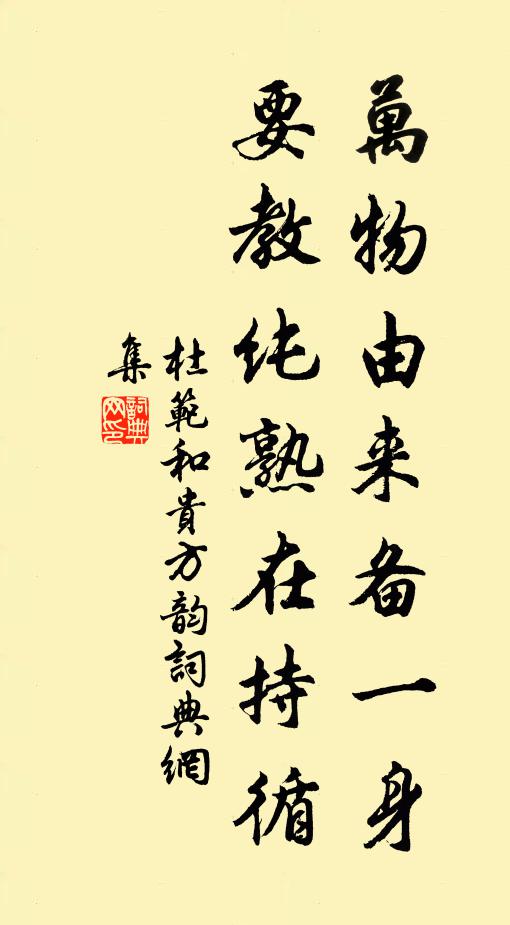 萬物由来备一身
要教纯熟在持循
杜範和貴方韵詞典網
集
詞典
网印